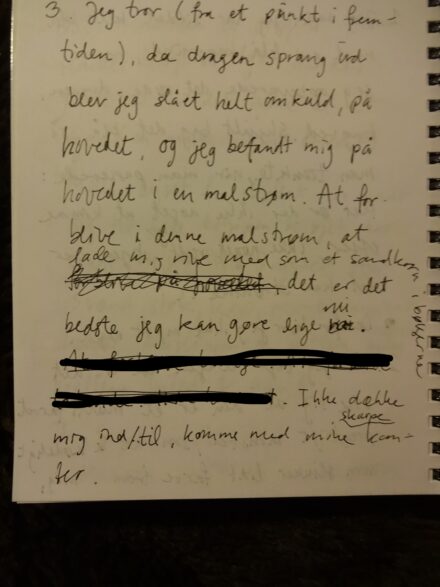 3. Jeg tror (fra et punkt i frem-
tiden), da dragen sprang ud
blev jeg slået helt omkuld, på
hovedet, og jeg befandt mig på
hovedet i en malstrøm. At for-
blive i denne malstrøm, at
lade mig rive med som et sandkorn i bølgerne
, det er det
bedste jeg kan gøre lige nu.
. Ikke dække
mig ind/til, komme med mine skarpe kan-
ter.